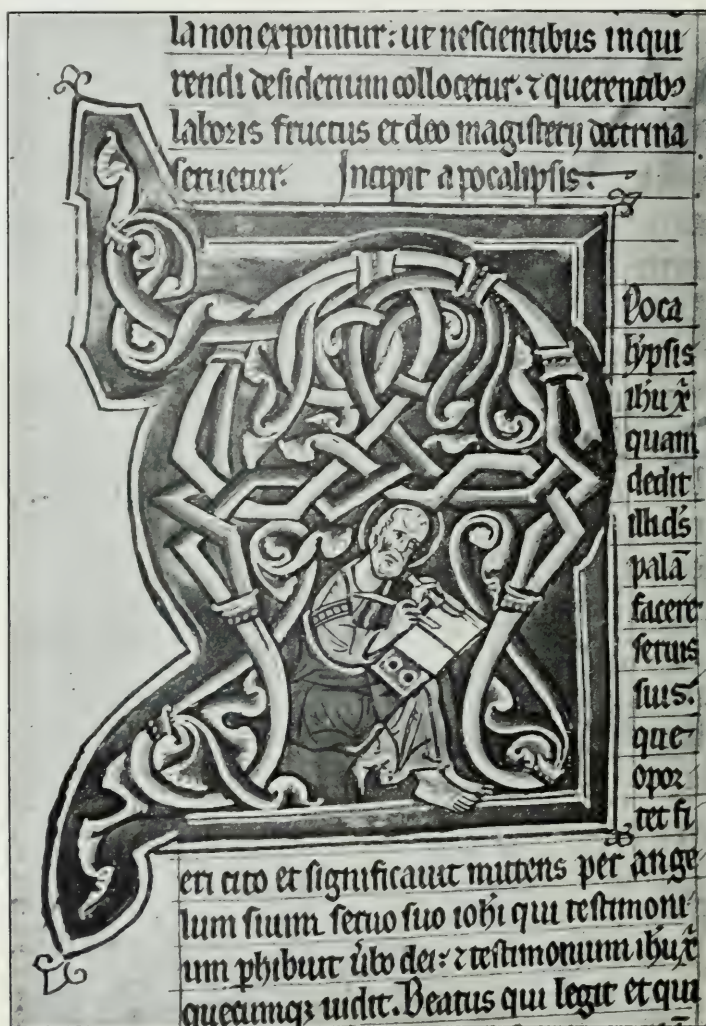 la non exponitur: ut nescientibus inqui
rendi desiderium collocetur. ⁊ querentibꝰ
laboris fructus et deo magisterij doctrina
seruetur. Incipit apocalipsis.
A
Poca
lypsis
ihu xp̄
quam
dedit
illi ds̄
palā
facere
seruis
suis.
que
opor
tet fi
eri cito et significauit mittens per ange
lum suum seruo suo iohi qui testimoni
um phibuit ūbo dei: ⁊ testimonium ihu xp̄
quecumqꝫ uidit. Beatus qui legit et qui